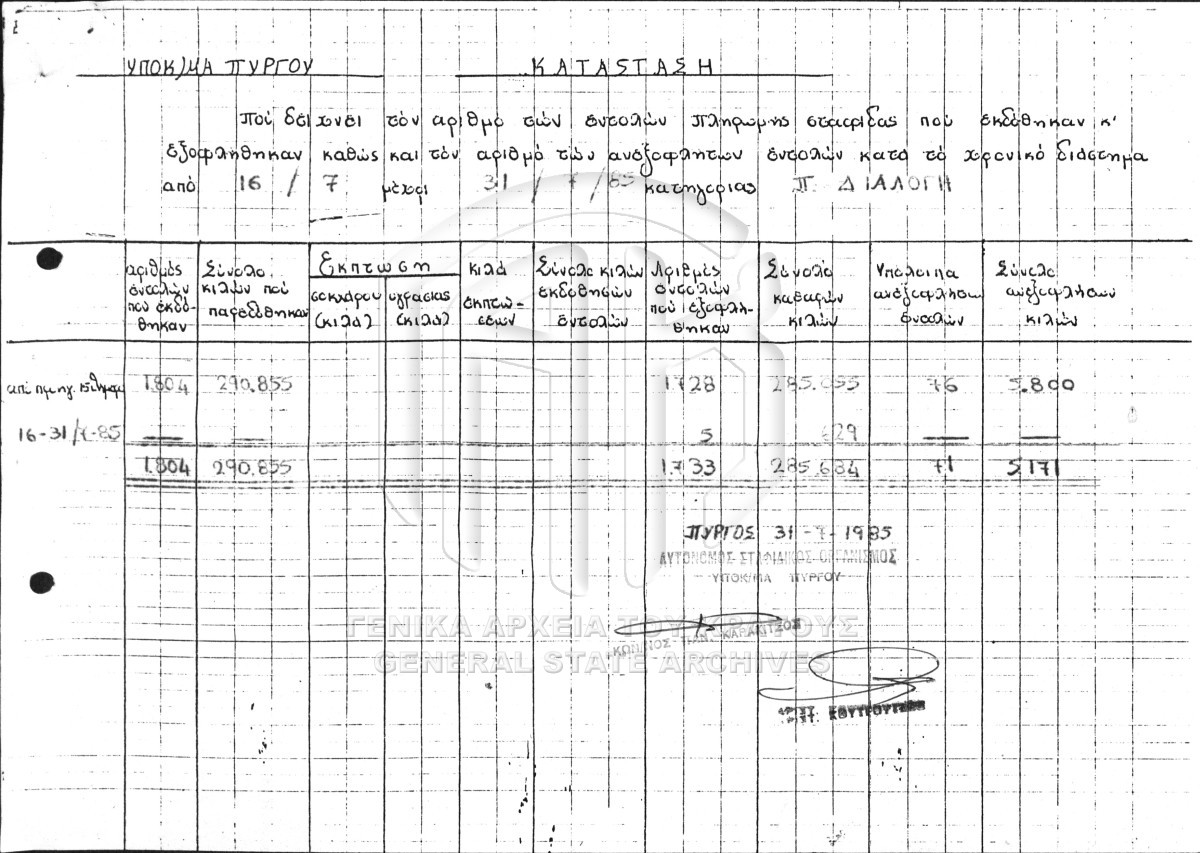 ΥΠΟΚ)ΜΑ ΠΥΡΓΟΥ ΚΑΤΑΣΤΑΣΗ
πού δείχνει τόν αριθμό τών εντολών πληρωμής σταφίδας πού εκδόθηκαν κ'
εξοφλήθηκαν καθώς και τόν αριθμό τών ανεξοφλήτων εντολών κατά τό χρονικό διάστημα
από 16 / 7 μέχρι 31 / 7 / 85 κατηγορίας Π. ΔΙΑΛΟΓΗ
αριθμός εντολών πού εκδόθηκαν
Σύνολο κιλών πού παρεδόθηκαν
Εκπτωση
(κιλά)
υγρασίας (κιλά)
κιλά εκπτώσεων
Σύνολο κιλών εκδοθησών εντολών
Αριθμός εντολών πού εξοφλήθηκαν
Σύνολο καθαρών κιλών
Υπόλοιπα ανεξοφλήτων εντολών
Σύνολο ανεξοφλήτων κιλών
από προηγ. 15θήμερο 1.804 290.855 1.728 285.055 76 5.800
16-31/7-85 — — 5 629 — —
1.804 290.855 1.733 285.684 71 5.171
ΠΥΡΓΟΣ 31-7-1985
ΑΥΤΟΝΟΜΟΣ ΣΤΑΦΙΔΙΚΟΣ ΟΡΓΑΝΙΣΜΟΣ
ΥΠΟΚ/ΜΑ ΠΥΡΓΟΥ
ΓΕΝΙΚΑ ΑΡΧΕΙΑ ΤΟΥ ΚΡΑΤΟΥΣ
GENERAL STATE ARCHIVES